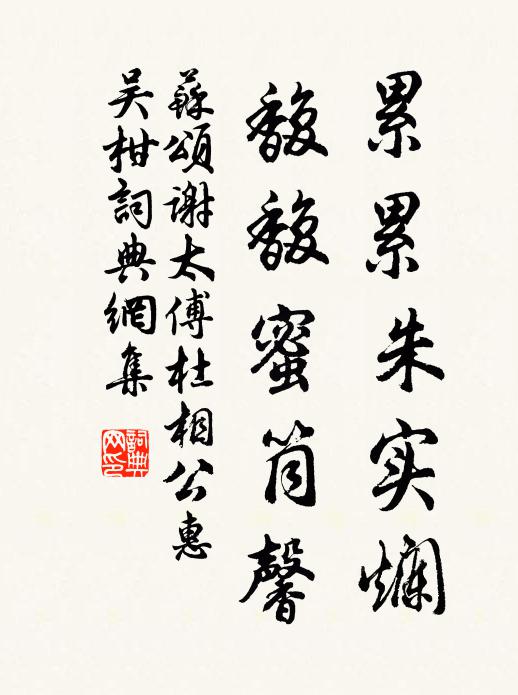 累累朱实爛
馥馥蜜筒馨
蘇頌謝太傅杜相公惠
吴柑詞典網集
詞典
网印